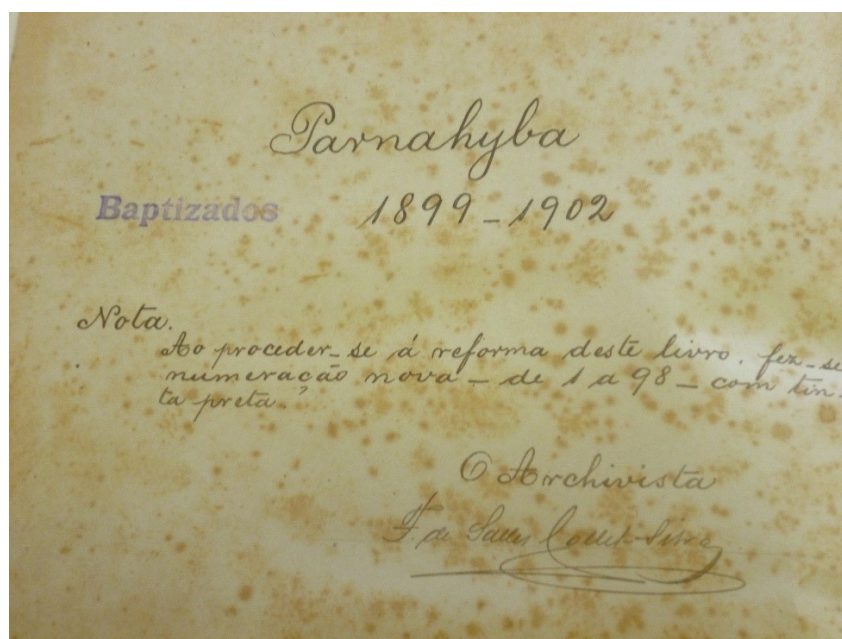 Parnahyba
Baptizados 1899-1902
Nota.
Ao proceder-se á reforma deste livro, fez-se
numeração nova - de 1 a 98 - com tin-
ta preta.
O Archivista
F. de Salles Collet-Silva